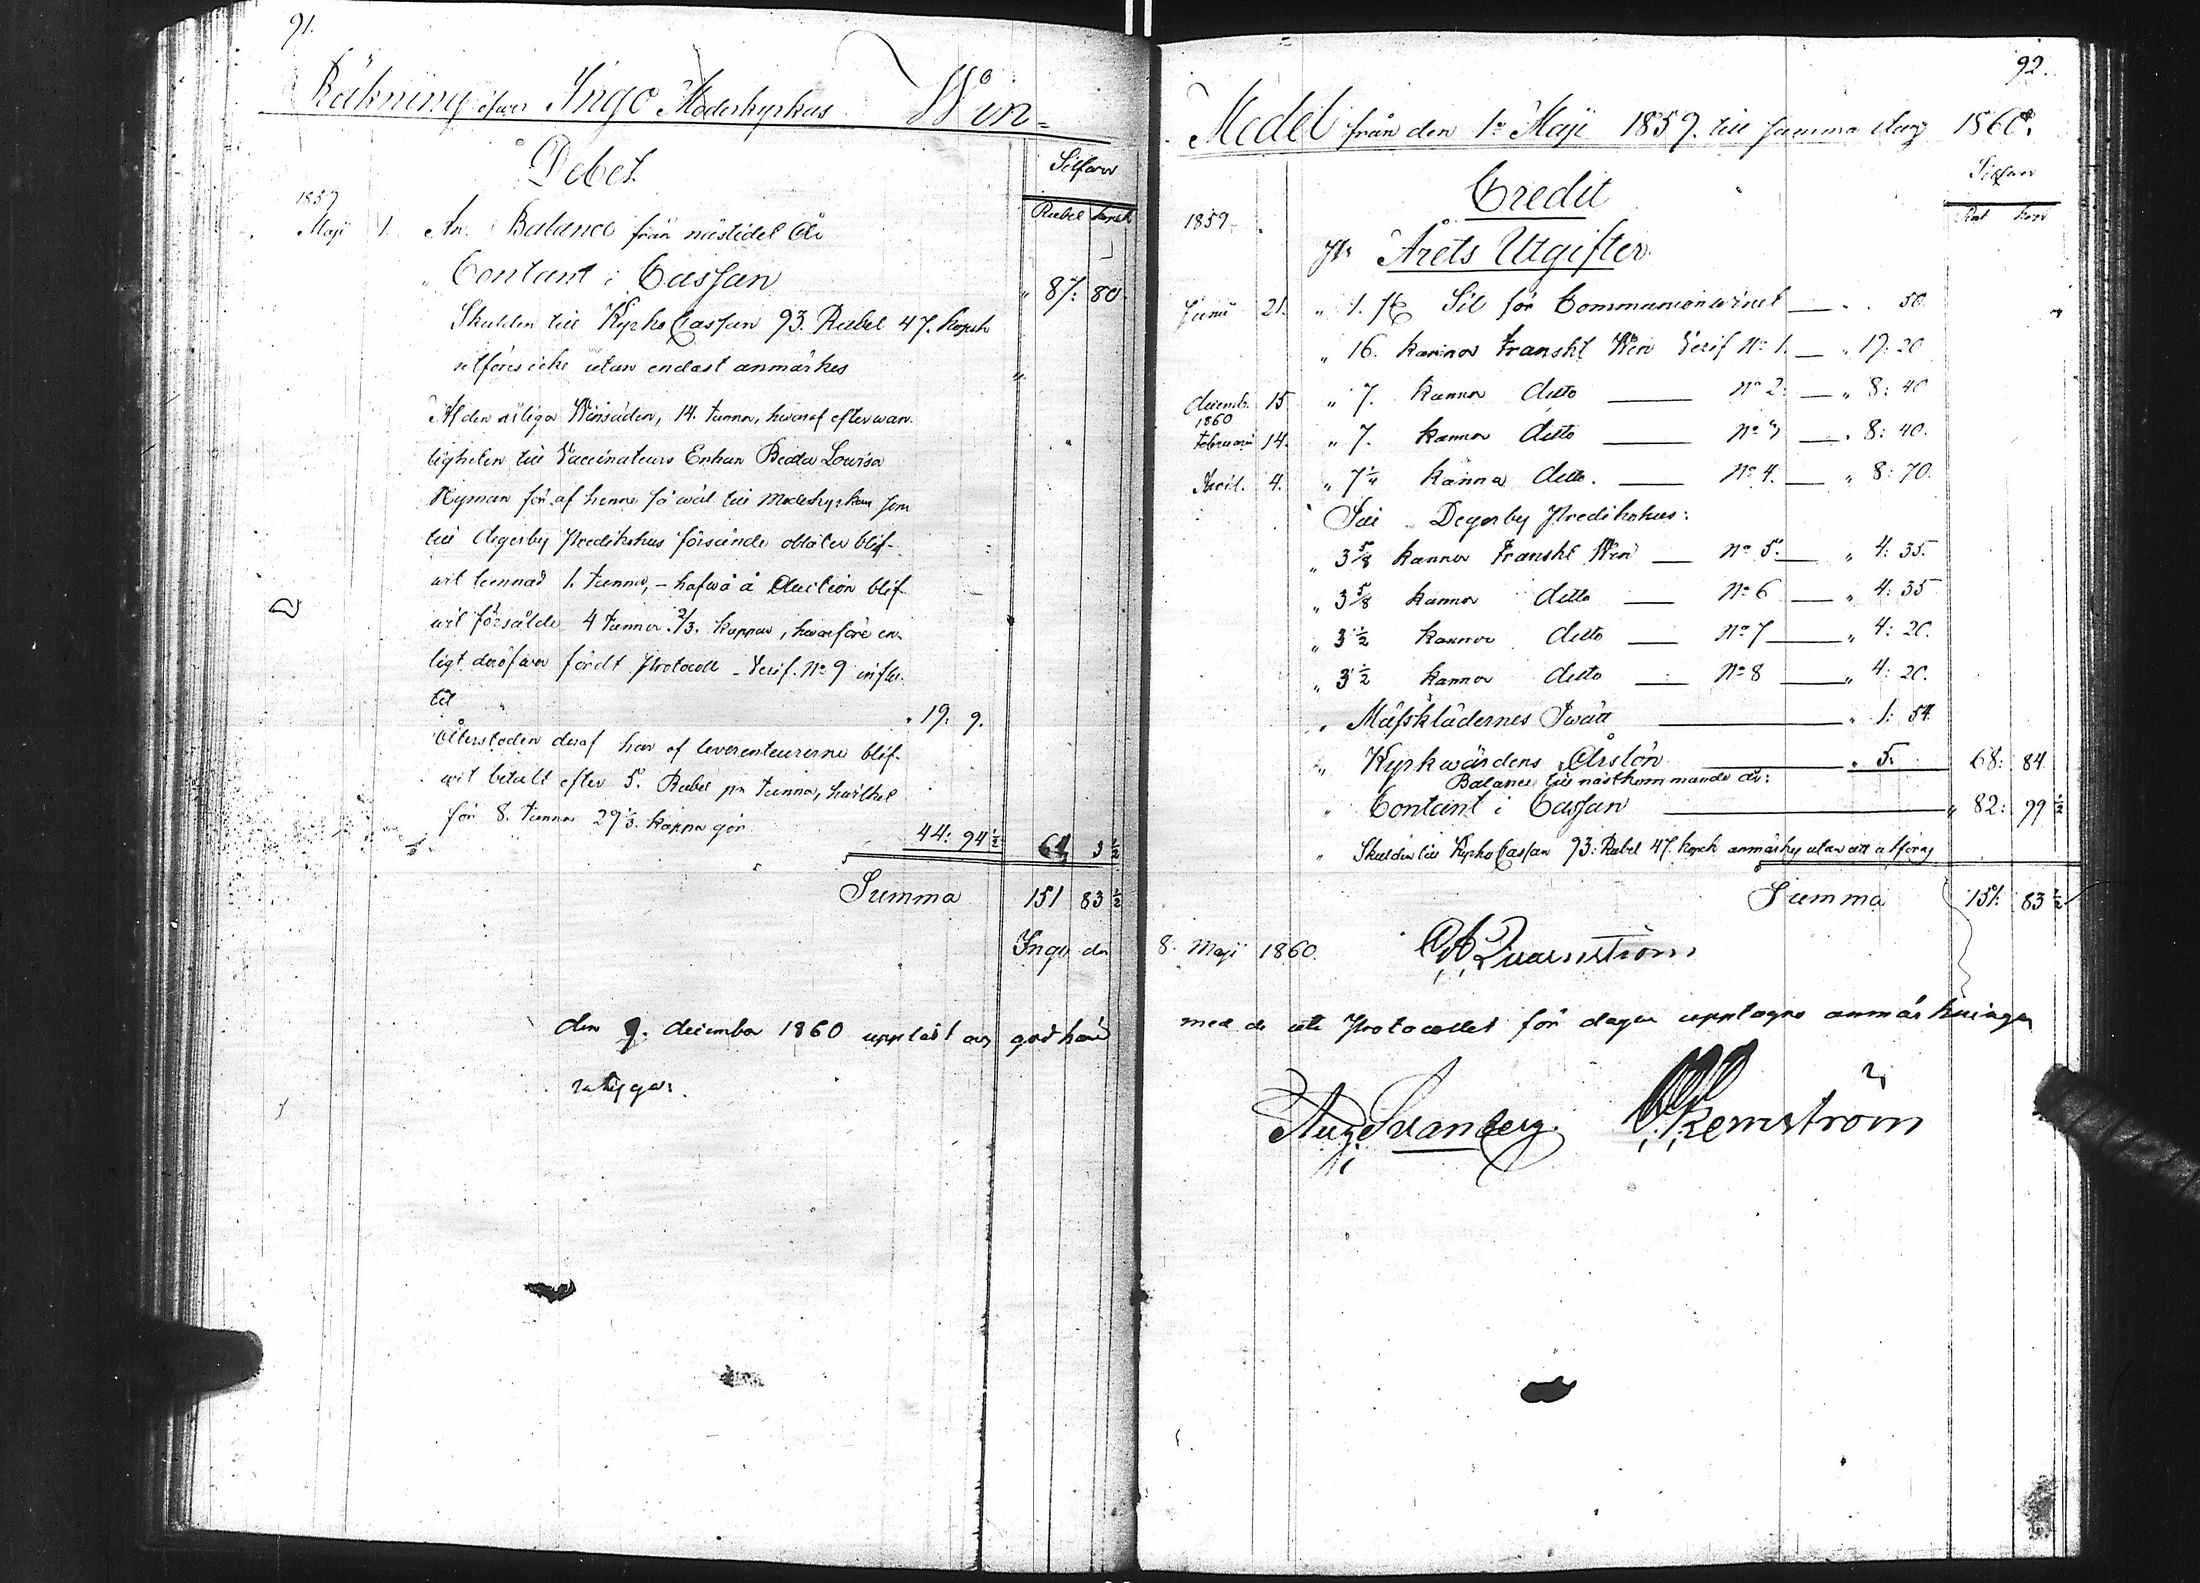 91.
Räkning öfver Ingo Moderkyrkas Win=
Debet
Silfver
Rubel kopek
1859
Maji 1. An Balance från nästledet År
" Contant i Cassan " 87: 80.
Skulden till KyrkoCassan 93. Rubel 47. kopek
utföres icke utan endast anmärkes "
Af den årliga Winsäden, 14. tunnor, hwaraf efter wan-
ligheten till Vaccinateurs Enkan Beata Lovisa
Nyman för af henne så wäl till Moderkyrkan som
till Degerby Predikohus försände oblater blif-
wit lemnad 1. tunna, – hafwa å Auction blif-
wit försålde 4 tunnor 2/3. kappar, hwarföre en-
ligt deröfwer fördt Protocoll – Verif. No 9 influ-
tit " 19: 9.
Återstoden deraf har af leverenteurerne blif-
wit betalt efter 5. Rubel pr tunna, hwilket
för 8. tunnor 29 1/3. kappa gör 44: 94 1/2 64 3 1/2
Summa 151 83 1/2
Ingo den
den 9. december 1860 uppläst och godkänd
92.
Medel från den 1a Maji 1859. till samma dag 1860.
Credit
Silfver
Rub kop
1859.
Pr Årets Utgifter
Junii 21. " 1. st Sil för Communionwinet — " 50.
" 16. kannor Franskt Win Verif No 1. — " 19: 20
decemb. 15 " 7. kannor ditto — No 2: — " 8: 40
1860
Februarii 14. " 7. kannor ditto — No 3 — " 8: 40.
April. 4. " 7 1/4 kanna ditto. — No 4. — " 8: 70.
Till Degerby Predikohus:
" 3 5/8 kannor Franskt Win — No 5. — " 4: 35.
" 3 5/8 kannor ditto — No 6 — " 4: 35
" 3 1/2 kannor ditto — No 7 — " 4: 20.
" 3 1/2 kannor ditto — No 8 — " 4: 20.
" Mässklädernes Twätt — " 1: 54.
" Kyrkwärdens Årslön — " 5. 68: 84
Balance till nästkommande år:
" Contant i Cassan — " 82: 99 1/2
" Skulden till KyrkoCassan 93: Rubel 47. kopek anmärkes utan att utföras
Summa 151: 83 1/2
8. Maji 1860. Qvarnström
med de uti Protocollet för dagen upptagne anmärkningar
Aug. Svanberg.